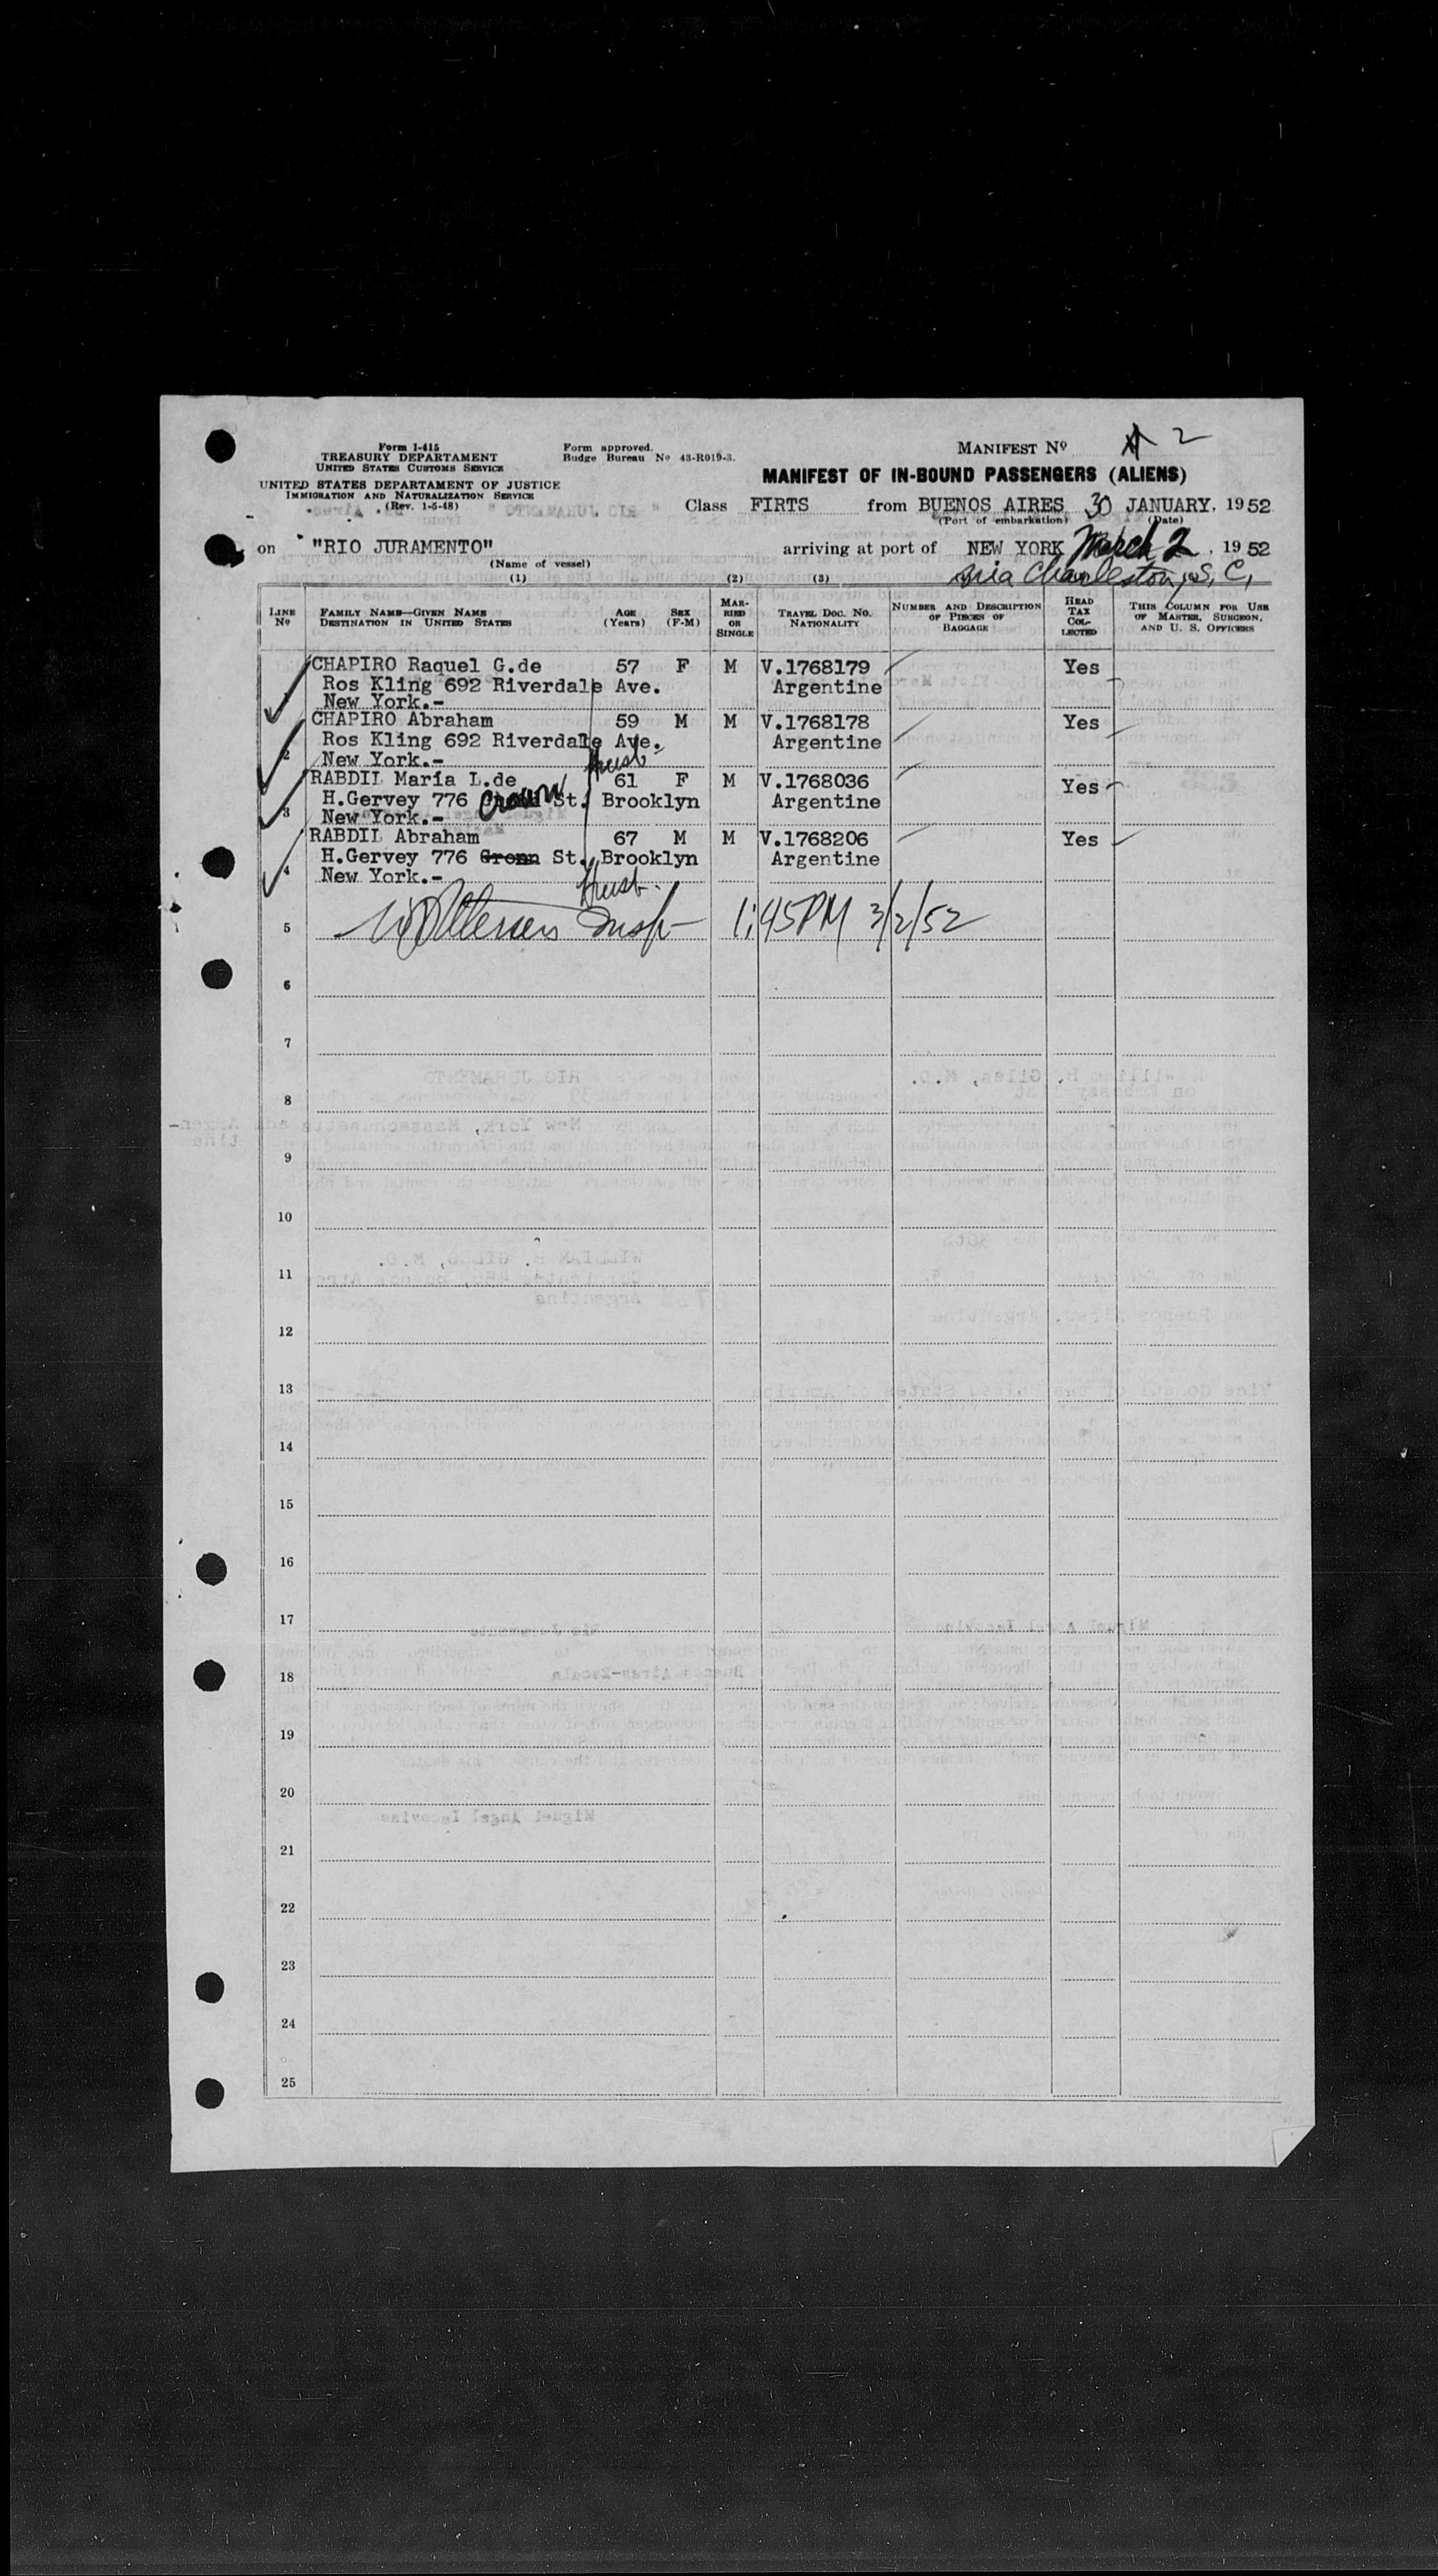 Form I-415
TREASURY DEPARTAMENT
UNITED STATES CUSTOMS SERVICE
UNITED STATES DEPARTAMENT OF JUSTICE
IMMIGRATION AND NATURALIZATION SERVICE
(Rev. 1-5-48)
Form approved.
Budge Bureau Nº 43-R019-3.
MANIFEST Nº 2
MANIFEST OF IN-BOUND PASSENGERS (ALIENS)
Class FIRTS from BUENOS AIRES 30 JANUARY, 1952
(Port of embarkation) (Date)
on "RIO JURAMENTO" arriving at port of NEW YORK March 2, 1952
(Name of vessel)
via Charleston, S, C,
(1) (2) (3)
LINE Nº
FAMILY NAME—GIVEN NAME
DESTINATION IN UNITED STATES
AGE (Years)
SEX (F-M)
MARRIED OR SINGLE
TRAVEL DOC. NO. NATIONALITY
NUMBER AND DESCRIPTION OF PIECES OF BAGGAGE
HEAD TAX COLLECTED
THIS COLUMN FOR USE OF MASTER, SURGEON, AND U. S. OFFICERS
CHAPIRO Raquel G.de 57 F M V.1768179 Yes
Ros Kling 692 Riverdale Ave. Argentine
1 New York.-
CHAPIRO Abraham 59 M M V.1768178 Yes
Ros Kling 692 Riverdale Ave. Argentine
2 New York.- Husb-
RABDIL María L.de 61 F M V.1768036 Yes
H.Gervey 776 Crown St. Brooklyn Argentine
3 New York.-
RABDIL Abraham 67 M M V.1768206 Yes
H.Gervey 776 Gronn St. Brooklyn Argentine
4 New York.- Husb.
5 Insp 1:45PM 3/2/52
6
7
8
9
10
11
12
13
14
15
16
17
18
19
20
21
22
23
24
25